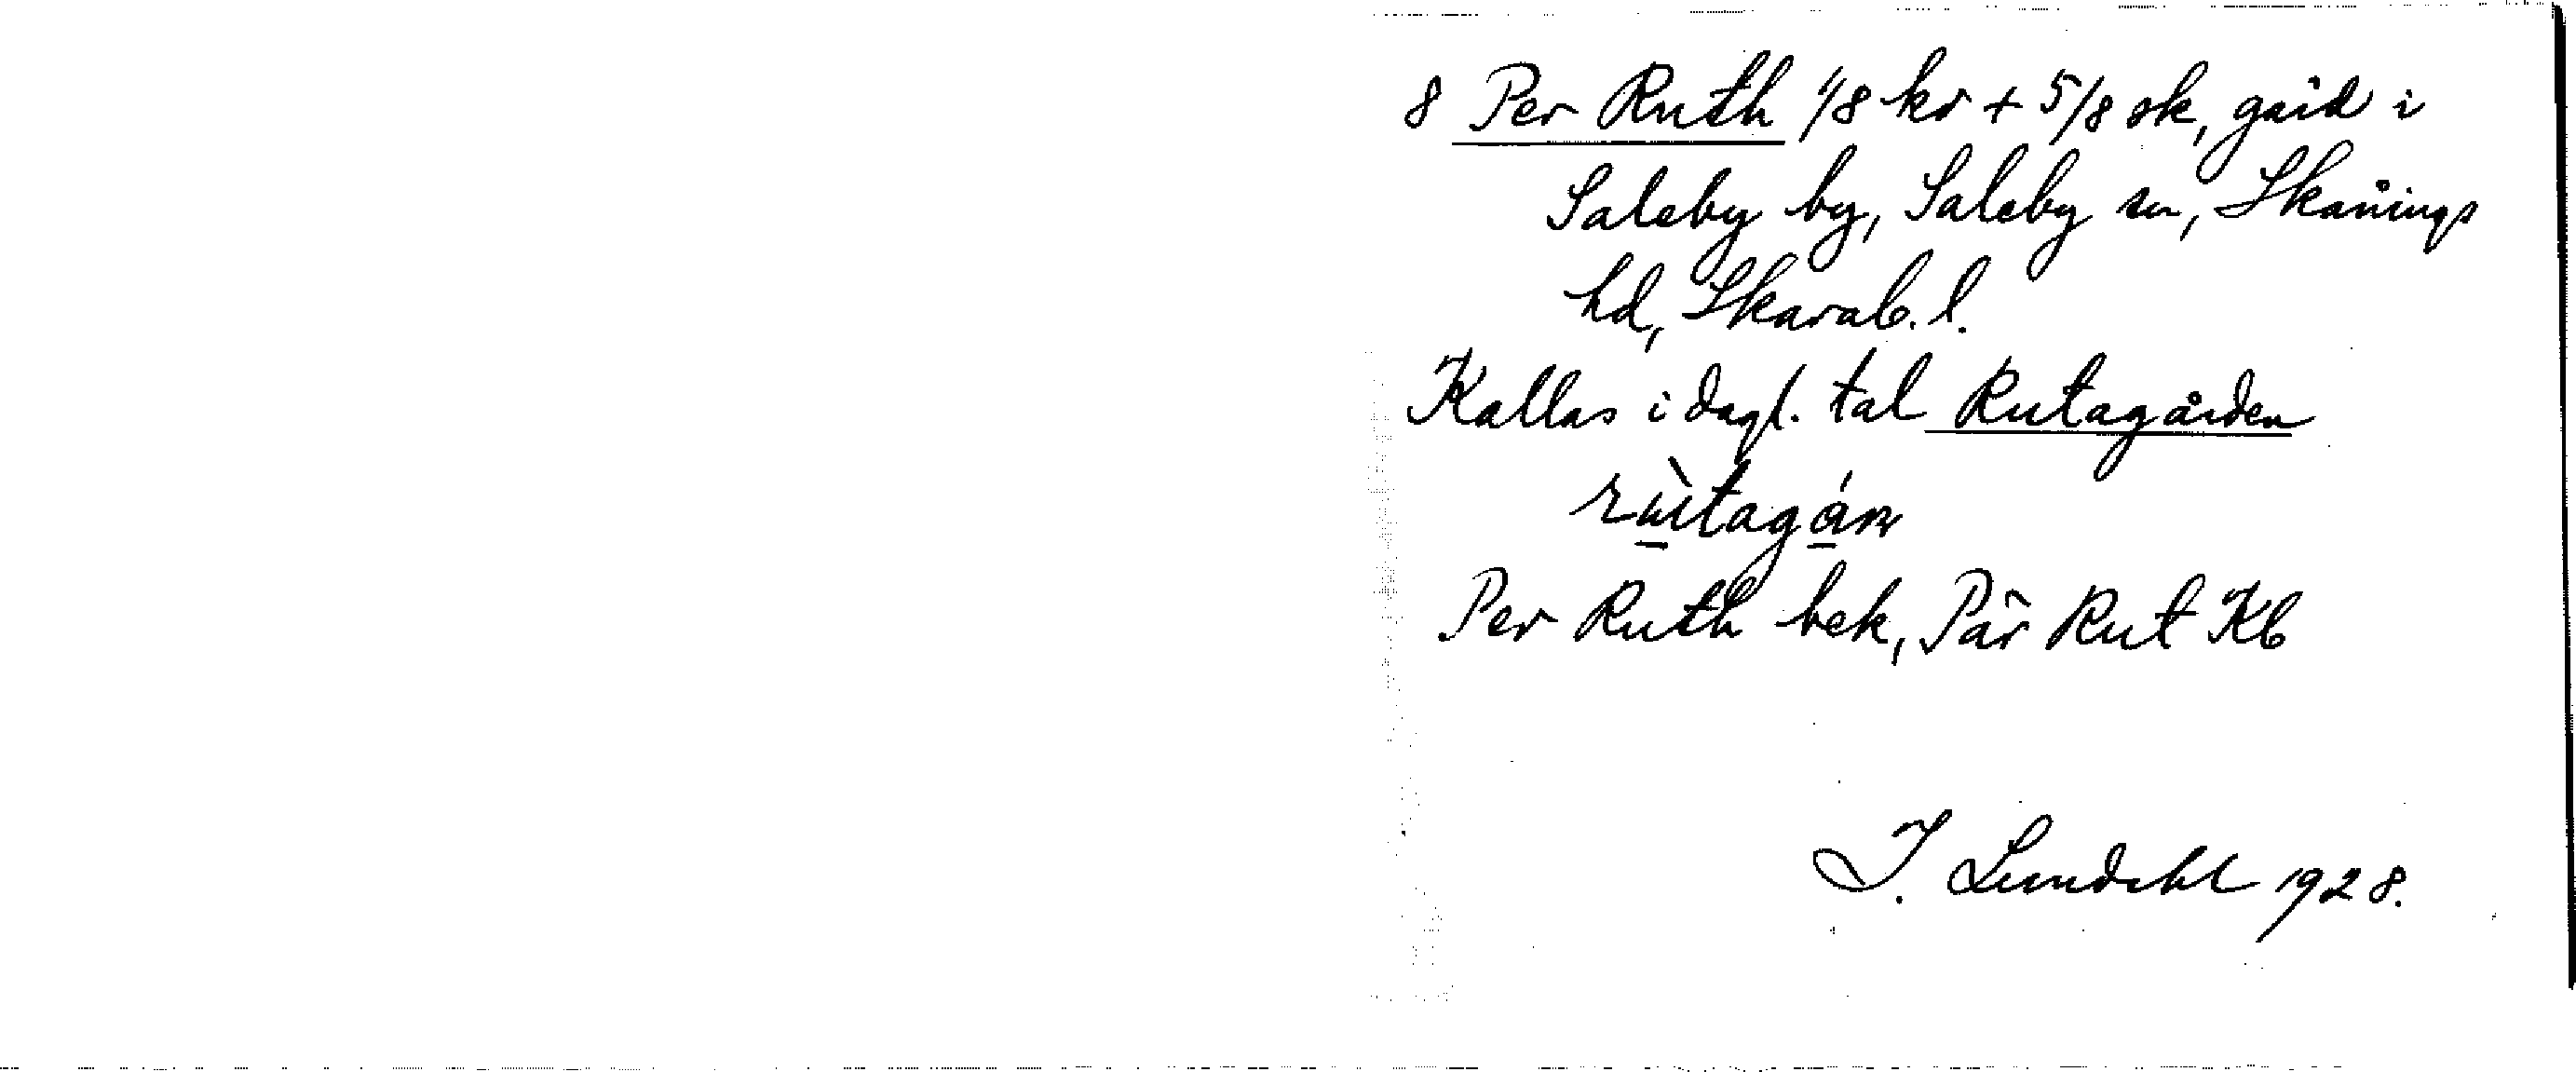 8 Per Ruth 1/8 kr + 5/8 sk, gård i
Saleby by, Saleby sn, Skånings
hd, Skarab. l.
Kallas i dagl. tal Rutagården
Per Ruth bek, Pär Rut Kb
I. Lundahl 1928.